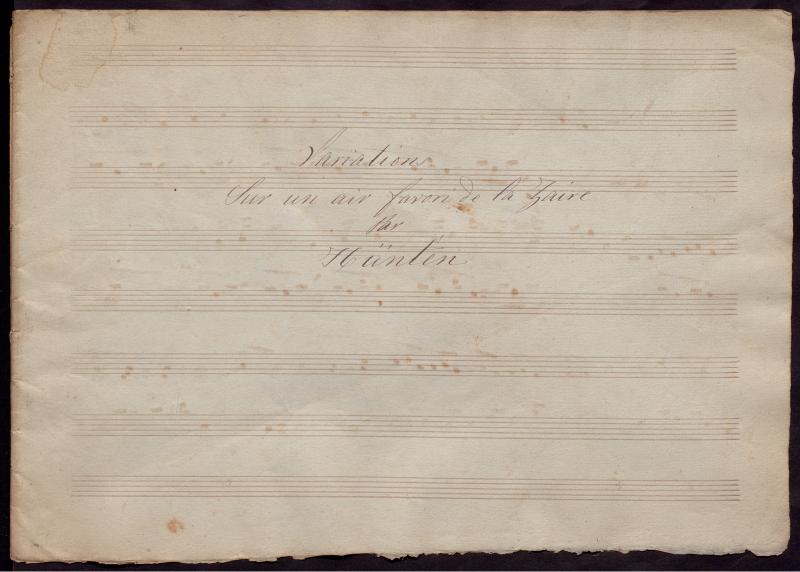 Variation
Sur un air favori de la Zaire
Par
Hünten